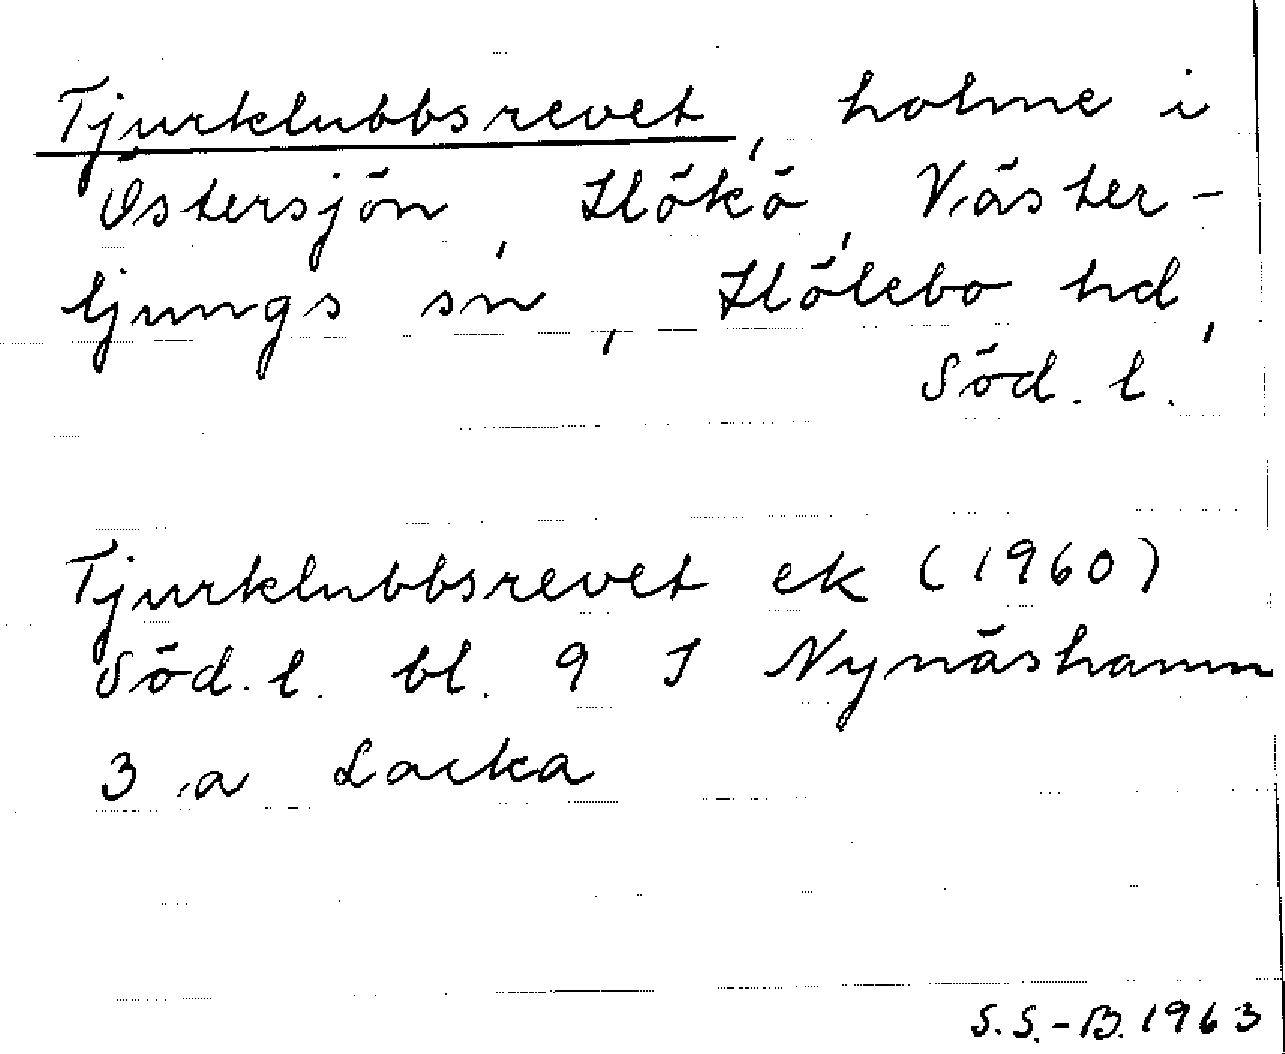 Tjurklubbsrevet, holme i
Östersjön, Hökö, Väster-
ljungs sn, Hölebo hd,
Söd. l.
Tjurklubbsrevet ek (1960)
Söd. l. bl. 9 I Nynäshamn
3 a Lacka
S.S.-B. 1963